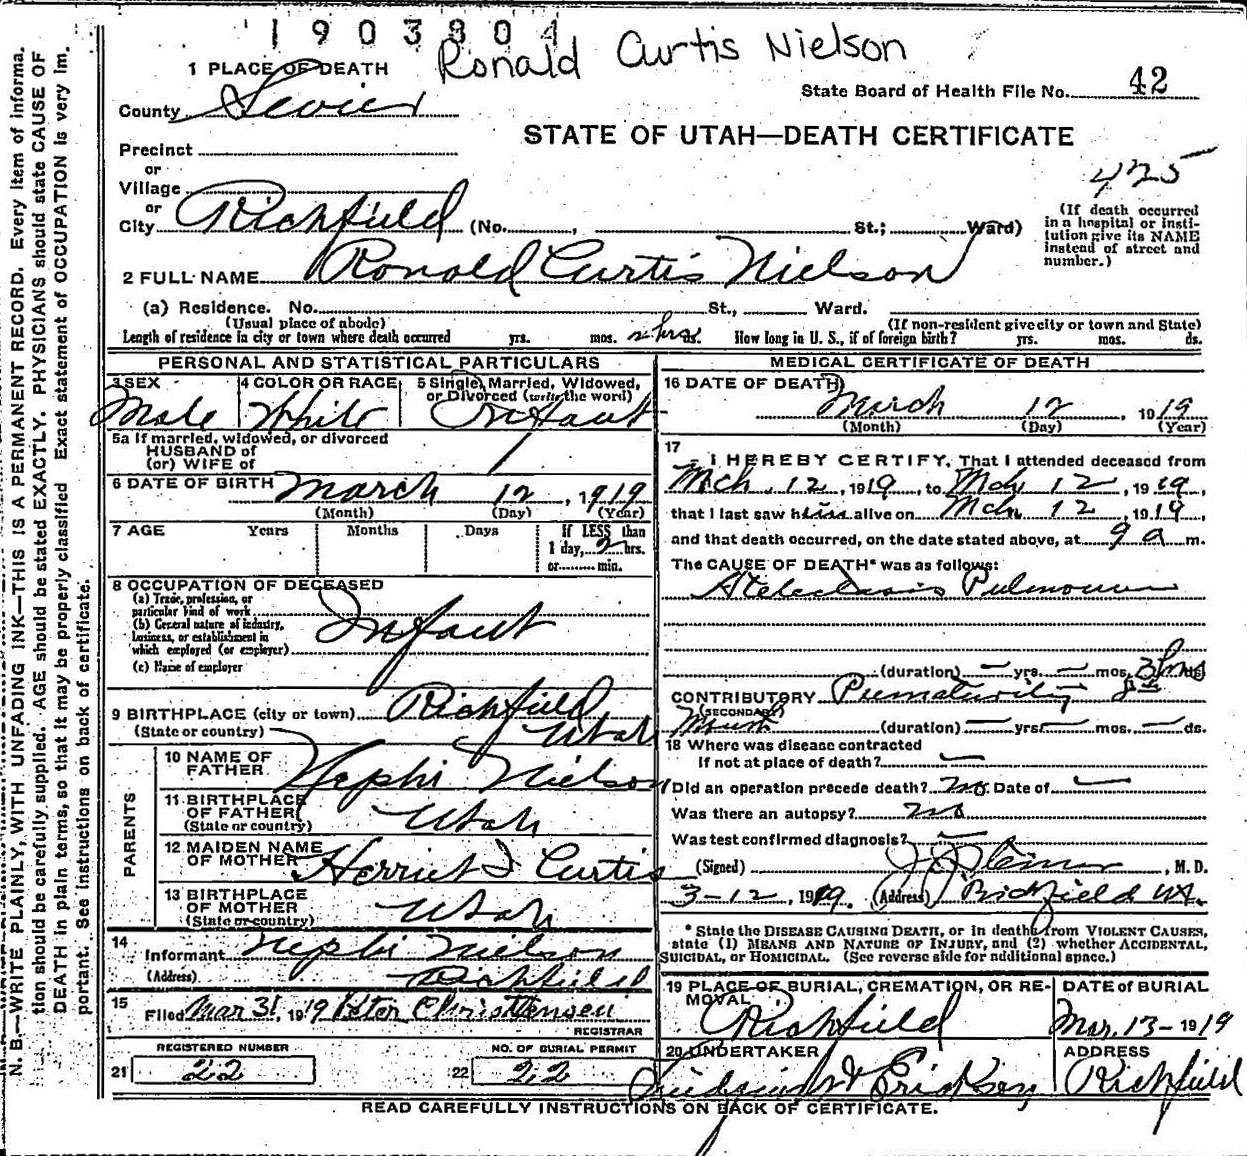 1903804
Ronald Curtis Nielson
1 PLACE OF DEATH
State Board of Health File No. 42
County Sevier
STATE OF UTAH—DEATH CERTIFICATE
Precinct
or
Village
or
425
City Richfield (No. , St.; Ward)
(If death occurred in a hospital or insti-
tution give its NAME instead of street and number.)
2 FULL NAME Ronald Curtis Nielson
(a) Residence. No. St., Ward.
(Usual place of abode) (If non-resident give city or town and State)
Length of residence in city or town where death occurred yrs. mos. 2 hrs. ds. How long in U. S., if of foreign birth? yrs. mos. ds.
PERSONAL AND STATISTICAL PARTICULARS
3 SEX Male
4 COLOR OR RACE White
5 Single, Married, Widowed, or Divorced (write the word) Infant
5a If married, widowed, or divorced
HUSBAND of
(or) WIFE of
6 DATE OF BIRTH March 12, 1919
(Month) (Day) (Year)
7 AGE Years Months Days If LESS than
1 day, 2 hrs.
or min.
8 OCCUPATION OF DECEASED
(a) Trade, profession, or
particular kind of work
(b) General nature of industry,
business, or establishment in
which employed (or employer)
Infant
(c) Name of employer
9 BIRTHPLACE (city or town) Richfield
(State or country) Utah
PARENTS
10 NAME OF FATHER Nephi Nielson
11 BIRTHPLACE OF FATHER (State or country) Utah
12 MAIDEN NAME OF MOTHER Herriet I Curtis
13 BIRTHPLACE OF MOTHER (State or country) Utah
14 Informant Nephi Nielson
(Address) Richfield
15 Filed Mar 31, 1919 Peter Christensen
REGISTRAR
REGISTERED NUMBER
21 22
NO. OF BURIAL PERMIT
22 22
MEDICAL CERTIFICATE OF DEATH
16 DATE OF DEATH
March 12, 1919
(Month) (Day) (Year)
17 I HEREBY CERTIFY, That I attended deceased from
Mch. 12, 1919, to Mch 12, 1919,
that I last saw him alive on Mch 12, 1919,
and that death occurred, on the date stated above, at 9 a m.
The CAUSE OF DEATH* was as follows:
Atelectasis Pulmonum
(duration) — yrs. — mos. 3 hrs ds.
CONTRIBUTORY Prematurity 8th
(SECONDARY)
Month (duration) — yrs. — mos. — ds.
18 Where was disease contracted
If not at place of death? —
Did an operation precede death? No. Date of —
Was there an autopsy? no
Was test confirmed diagnosis? —
(Signed) , M. D.
3-12, 1919. (Address) Richfield Ut.
* State the DISEASE CAUSING DEATH, or in deaths from VIOLENT CAUSES,
state (1) MEANS AND NATURE OF INJURY, and (2) whether ACCIDENTAL,
SUICIDAL, or HOMICIDAL. (See reverse side for additional space.)
19 PLACE OF BURIAL, CREMATION, OR RE-
MOVAL Richfield
DATE of BURIAL
Mar. 13-1919
20 UNDERTAKER
& Erickson
ADDRESS
Richfield
READ CAREFULLY INSTRUCTIONS ON BACK OF CERTIFICATE.
N. B.—WRITE PLAINLY, WITH UNFADING INK—THIS IS A PERMANENT RECORD. Every item of informa-
tion should be carefully supplied. AGE should be stated EXACTLY. PHYSICIANS should state CAUSE OF
DEATH in plain terms, so that it may be properly classified Exact statement of OCCUPATION is very im-
portant. See instructions on back of certificate.